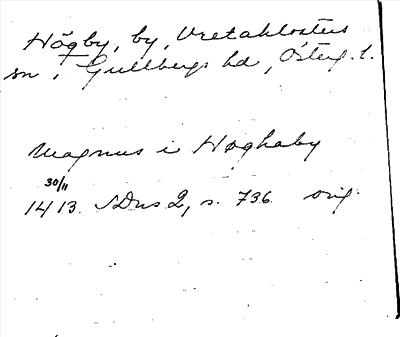 Högby, by, Vretaklosters
sn, Gullbergs hd, Österg. l.
Magnus i Høghaby
30/11
1413. SDns 2, s. 736. orig.